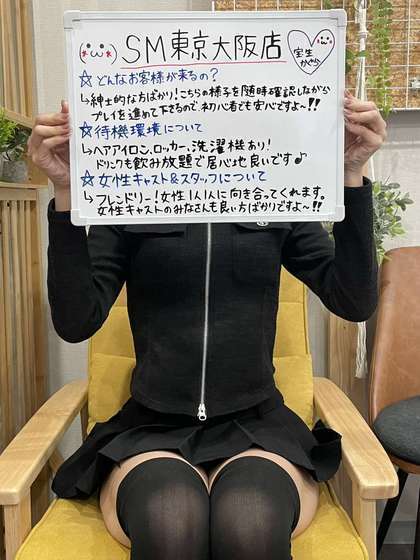 SM東京大阪店
宝生
かぐら
☆どんなお客様が来るの?
↳紳士的な方ばかり!こちらの様子を随時確認しながら
プレイを進めて下さるので、初心者でも安心ですよ〜!!
☆待機環境について
↳ヘアアイロン、ロッカー、洗濯機あり!
ドリンクも飲み放題で居心地良いです♪
☆女性キャスト&スタッフについて
↳フレンドリー!女性1人1人に向き合ってくれます。
女性キャストのみなさんも良い方ばかりですよ〜!!